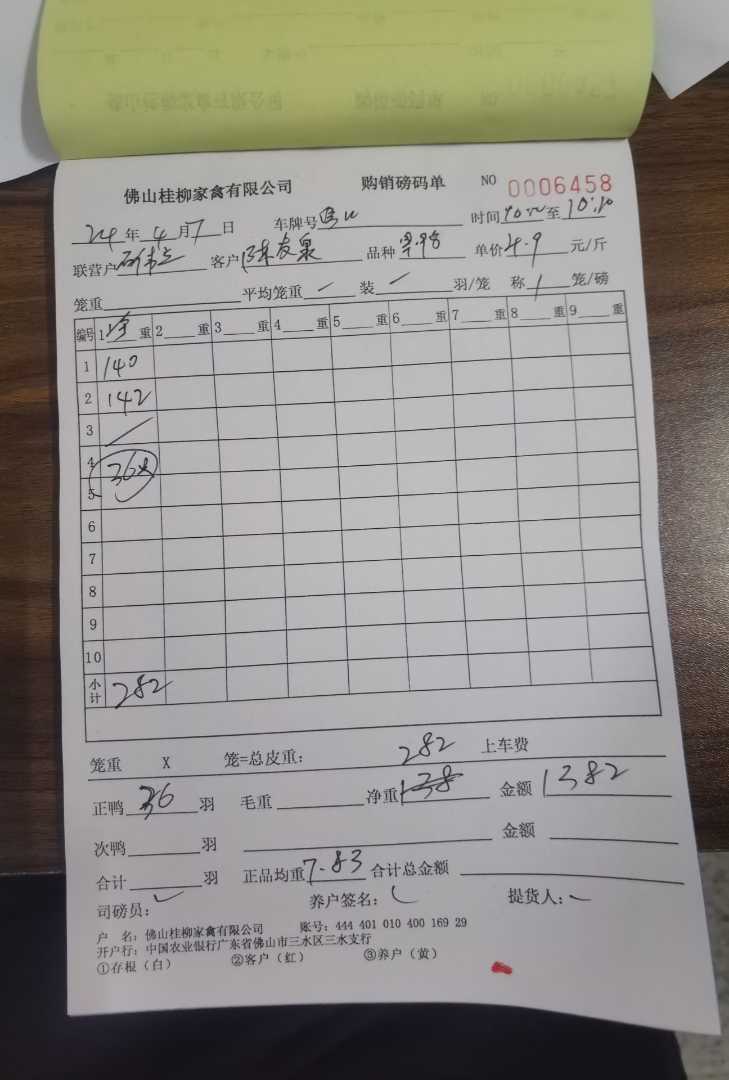 佛山桂柳家禽有限公司 购销磅码单 NO 0006458
24年4月7日 车牌号 时间 至10:10
联营户 客户 陈友泉 品种 单价4.9元/斤
笼重 平均笼重 / 装 / 羽/笼 称 / 笼/磅
编号 1净重 2 重 3 重 4 重 5 重 6 重 7 重 8 重 9 重
1 140
2 142
3 /
4 36只
5
6
7
8
9
10
小计 282
笼重 X 笼=总皮重: 282 上车费
正鸭 36 羽 毛重 净重 138 金额 1382
次鸭 羽 金额
合计 羽 正品均重7.83 合计总金额
司磅员: 养户签名: 提货人:
户 名: 佛山桂柳家禽有限公司 账号: 444 401 010 400 169 29
开户行: 中国农业银行广东省佛山市三水区三水支行
①存根(白) ②客户(红) ③养户(黄)